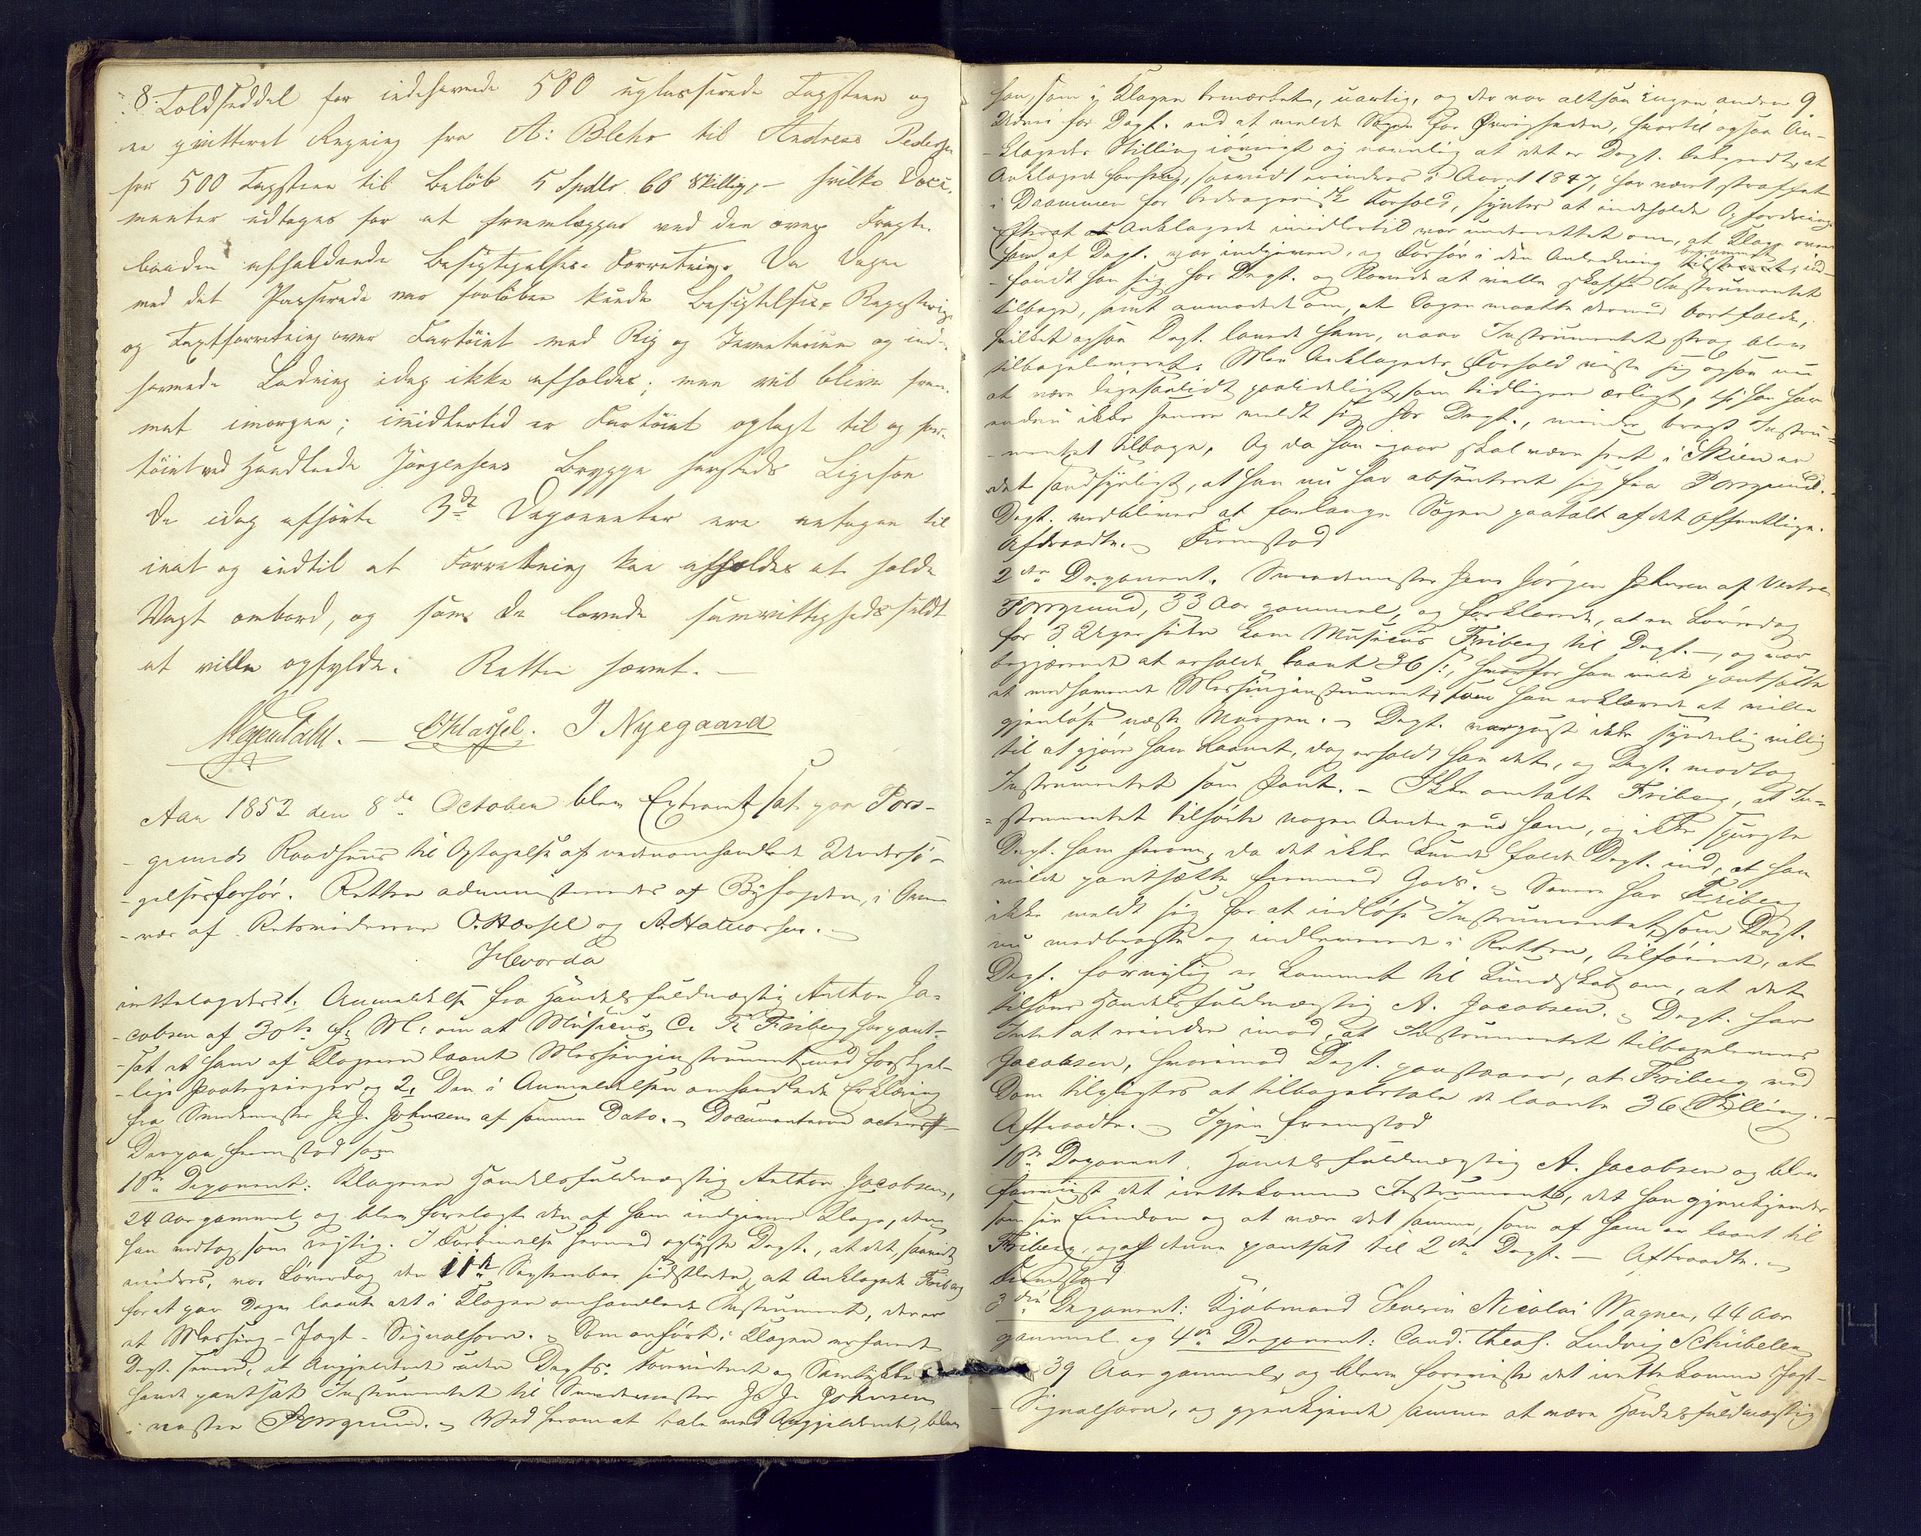 8.
Toldseddel for indehavende 500 uglasserede Tagsteen og
en qvitteret Regning fra A: Blehr til Andreas Pedersen
for 500 Tagsteen til Beløb 5 Spdlr 66 Skillig, - hvilke Docu-
menter udtoges for at fremlægges ved den over Fragt-
baaden afholdende Besigtigelses-Forretning. Da Dagen
med det Passerede var forløben kunde Besigtelses- Registerings
og Taxtforretning over Fartøiet med Rig og Inventarium og ind-
havende Ladning idag ikke afholdes; men vil blive frem-
met imorgen; imidlertid er Fartøiet oplagt til og for-
tøiet ved Handlende Jørgensens Brygge hersteds Ligesom
de idag afhørte 3de Deponenter ere antagne til
inat og indtil at Forretning kan afholdes at holde
Vagt ombord, og som de lovede samvittighedsfuldt
at ville opfylde. Retten hævet. -
OHassel. J Nyegaard
Aar 1852 den 8de October blev Extraret sat paa Pors-
grunds Raadhuus til Optagelse af nedenomhandlede Undersø-
gelsesforhør. Retten administreredes af Byfogden, i Over-
vær af Retsvidnerne O. Hassel og A. Halvorsen. -
Hvorda
irettelagdes 1, Anmeldelse fra Handelsfuldmægtig Anthon Ja-
cobsen af 30te f: M: om at Musicus C. F. Friberg har pant-
sat et ham af Klageren laant Messinginstrument med forskjel-
lige Paategninger og 2, Den i Anmeldelsen omhandlede Erklæring
fra Smedemester J. J. Johnsen af samme Dato. - Documenterne acteres
Derpaa fremstod som
1ste Deponent: Klageren Handelsfuldmægtig Anthon Jacobsen,
24 Aar gammel, og blev forelagt den af ham indgivne Klage, som
han vedtog som rigtig. I Forbindelse hermed oplyste Dept., at det, saavidt
mindes, var Løverdag den 11te September sidstleden, at Anklagede Friberg
for et par Dage laante det i Klagen omhandlede Instrument, der er
et Messing-Jagt-Signalhorn. - Som anført i Klagen erfarede
Dept. senere, at Angjeldende uden Depts. Forevidende og Samtykke
havde pantsat Instrumentet til Smedemester J. J. Johnsen
i vestre Porsgrund. - Ved herom at tale med Angjeldende, blev
9
han, som i Klagen bemærket, uartig, og der var altsaa Ingen anden
Udvei for Dept. end at melde Sagen for Øvrigheden, hvortil ogsaa An-
klagedes Stilling iøvrigt og navnlig at det er Dept. bekjendt, at
Anklagede forhen, saavidt erindres i Aaret 1847, har været straffet
i Drammen for bedragerisk Forhold, syntes at indeholde Opfordring
Efterat Anklagede imidlertid var underrettet om, at Klage over
ham af Dept. var indgiven, og Forhør i den Anledning berammet, ind-
fandt han sig hos Dept. og lovede at ville skaffe Instrumentet
tilbage, samt anmodet om, at Sagen maatte dermed bortfalde,
hvilket ogsaa Dept. lovede ham, naar Instrumentet strax blev
tilbageleveret. Men Anklagedes Forhold viste sig ogsaa nu
at være ligesaalidt paalideligt, som tidligere ærligt, thi han har
endnu ikke senere meldt sig hos Dept., mindre bragt Instru-
mentet tilbage. Og da han igaar skal være seet i Skien er
det sandsynligt, at han nu har absenteret sig fra Porsgrund.
Dept. vedbliver at forlange Sagen paatalt af det Offentlige.
Afstraadte. - Fremstod
2den Deponent. Smedemester Jens Jørgen Johnsen af Vestre
Porsgrund, 33 Aar gammel, og forklarede, at en Løverdag
for 3 Uger siden kom Musicus Friberg til Dept. -, og var
begjærende at erholde laant 36 s:, hvorfor han vilde pantsætte
et medhavende Messinginstrument, som han erklærede at ville
gjenløse næste Morgen. - Dept. var just ikke synderlig villig
til at gjøre ham Laanet, dog erholdt han det, og Dept. modtog
Instrumentet som Pant. - Ikke omtalte Friberg, at In-
strumentet tilhørte nogen Anden end ham, og ikke spurgte
Dept. ham herom, da det ikke kunde falde Dept. ind, at han
vilde pantsætte fremmed Gods. - Senere har Friberg
ikke meldt sig for at indløse Instrumentet, som Dept.
nu medbragte og indleverede i Retten, tilføiende, at
Dept. forøvrig er kommet til Kundskab om, at det
tilhører Handelsfuldmægtig A. Jacobsen. - Dept. har
Intet at erindre imod, at Instrumentet tilbageleveres
Jacobsen, hvorimod Dept. paastaaer, at Friberg ved
Dom tilpligtes at tilbagebetale de laante 36 Skilling. -
Aftraadte. - Igjen fremstod
1ste Deponent, Handelsfuldmægtig A. Jacobsen og blev
foreviist det irettekomne Instrument, det han gjenkjender
som sin Eiendom og at være det samme, som af ham er laant til
Friberg, og af denne pantsat til 2den Dept. - Aftraadte. -
Fremstod
3die Deponent: Kjøbmand Severin Nicolai Wagner, 44 Aar
gammel og 4de Deponent: Cand: theol. Ludvig Schübeler,
39 Aar gammel, og bleve foreviste det irettekomne Jagt-
Signalhorn, og gjenkjende samme at være Handelsfuldmægtig